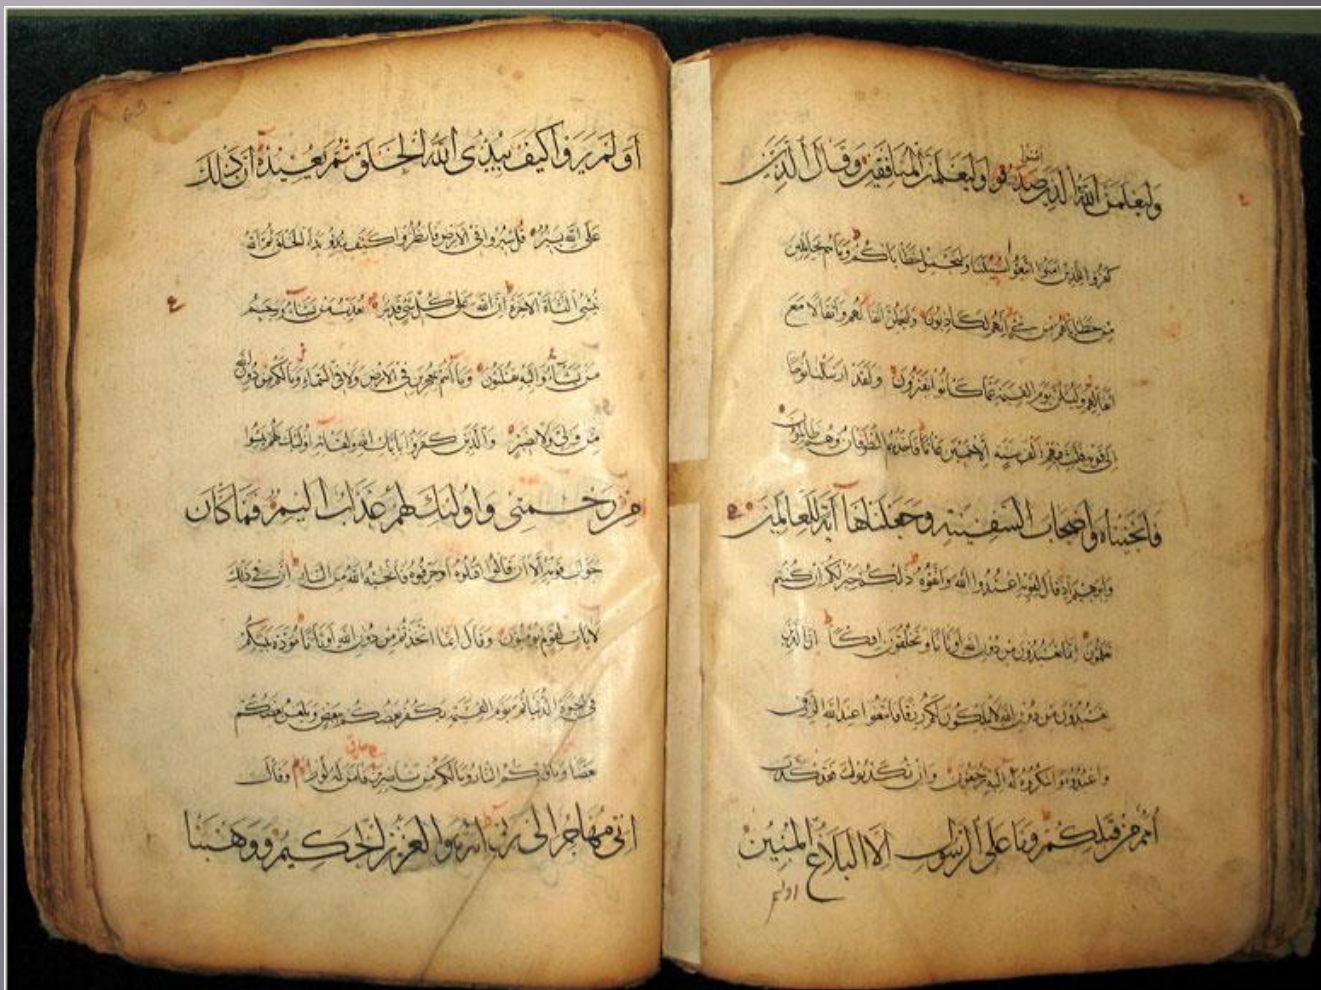 آمنوا
وليعلمن الله الذين صدقوا وليعلمن المنافقين وقال الذين
كفروا للذين امنوا اتبعوا سبيلنا ولنحمل خطاياكم وما هم بحاملين
من خطاياهم من شيء انهم لكاذبون وليحملن اثقالهم واثقالا مع
اثقالهم وليسئلن يوم القيمة عما كانوا يفترون ولقد ارسلنا نوحا
الى قومه فلبث فيهم الف سنة الا خمسين عاما فاخذهم الطوفان وهم ظالمون
فانجيناه واصحاب السفينة وجعلناها آية للعالمين
وابرهيم اذ قال لقومه اعبدوا الله واتقوه ذلكم خير لكم ان كنتم
تعلمون انما تعبدون من دون الله اوثانا وتخلقون افكا ان الذين
تعبدون من دون الله لا يملكون لكم رزقا فابتغوا عند الله الرزق
واعبدوه واشكروا له اليه ترجعون وان تكذبوا فقد كذب
امم من قبلكم وما على الرسول الا البلاغ المبين
اولم
اولم يروا كيف يبدئ الله الخلق ثم يعيده ان ذلك
على الله يسير قل سيروا في الارض فانظروا كيف بدأ الخلق ثم الله
ينشئ النشأة الاخرة ان الله على كل شيء قدير يعذب من يشاء ويرحم
من يشاء واليه تقلبون وما انتم بمعجزين في الارض ولا في السماء وما لكم من دون الله
من ولي ولا نصير والذين كفروا بايات الله ولقائه اولئك يئسوا
من رحمتي واولئك لهم عذاب اليم فما كان
جواب قومه الا ان قالوا اقتلوه او حرقوه فانجيه الله من النار ان في ذلك
لايات لقوم يؤمنون وقال انما اتخذتم من دون الله اوثانا مودة بينكم
في الحيوة الدنيا ثم يوم القيمة يكفر بعضكم ببعض ويلعن بعضكم
بعضا وماويكم النار وما لكم من ناصرين فامن له لوط وقال
اني مهاجر الى ربي انه هو العزيز الحكيم ووهبنا